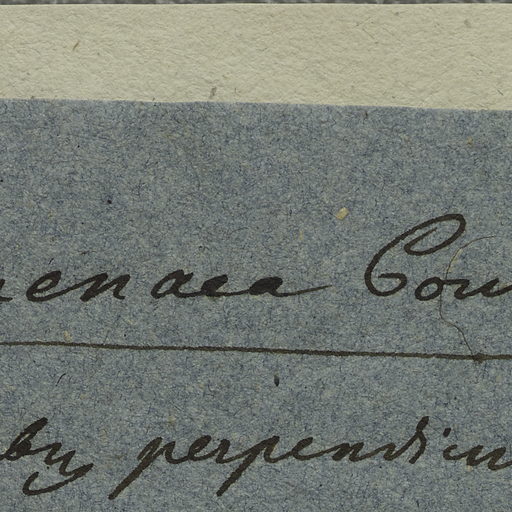 menaea Cour
by perpendicu